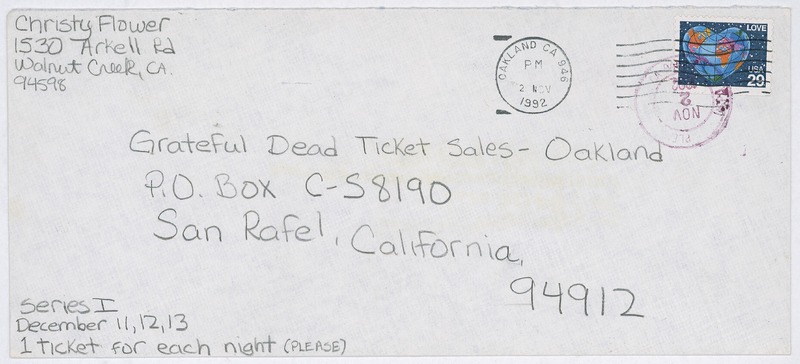 Christy Flower
1530 Arkell Rd
Walnut Creek, CA.
94598
OAKLAND CA 946
PM
2 NOV
1992
LOVE
USA
29
NOV
2
Grateful Dead Ticket Sales - Oakland
P.O. Box C-S8190
San Rafel, California,
94912
Series I
December 11, 12, 13
1 Ticket for each night (PLEASE)